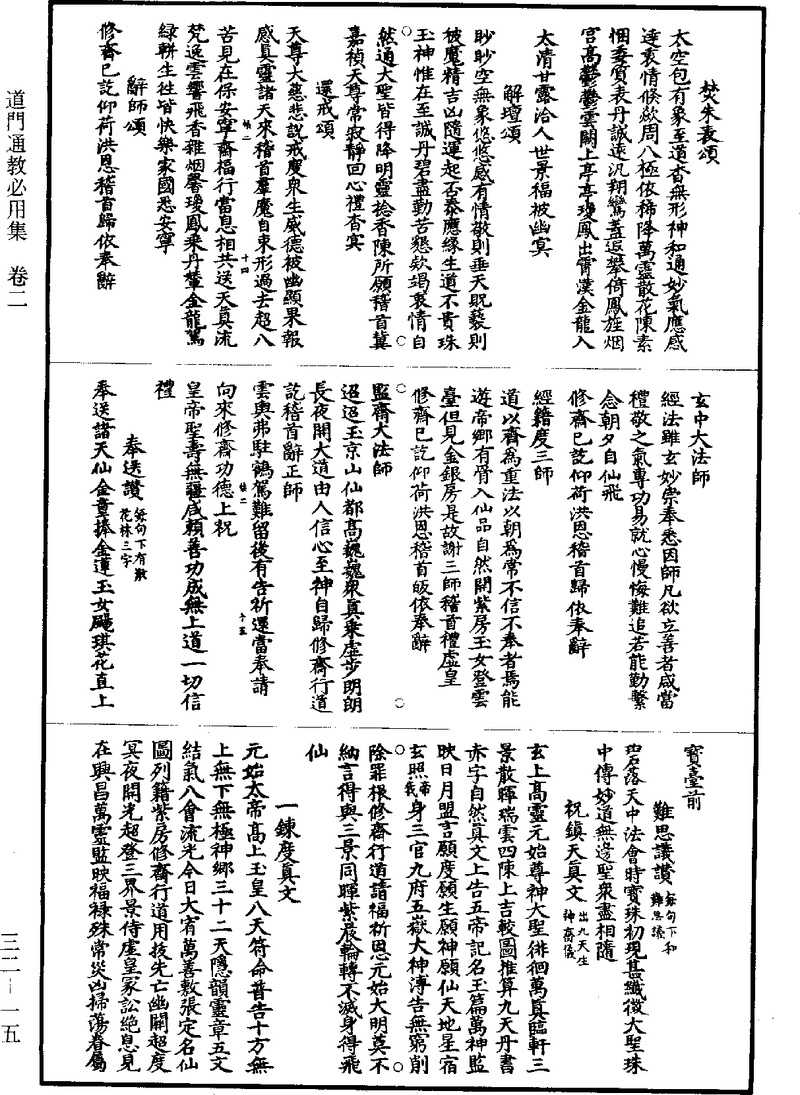 道門通教必用集 卷二
三二－一五
焚朱表頌
太空包有象至道杳無形神和通妙氣應感
達衷情倏欻周八極依稀降萬靈散花陳素
悃委質表丹誠遠汎翔鸞蓋返攀倚鳳旌烟
宮高鬱鬱雲闕上亭亭瓊鳳出霄漢金龍入
太清甘露洽人世景福被幽冥
解壇頌
眇眇空無象悠悠感有情敬則垂天貺褻則
被魔精吉凶隨運起否泰應緣生道不貴珠
玉神惟在至誠丹碧盡勤苦懇欵竭衷情自
然通大聖皆得降明靈捻香陳所願稽首冀
嘉禎天尊常寂靜回心禮杳冥
還戒頌
天尊大慈悲說戒度衆生威德被幽顯果報
感真靈諸天來稽首羣魔自束形過去超八
苦見在保安寧齋福行當息相共送天真流
梵逸雲響飛香雜烟馨瓊鳳乘丹輦金龍駕
緑軿生徃皆快樂家國悉安寧
辭師頌
修齋已訖仰荷洪恩稽首歸依奉辭
玄中大法師
經法雖玄妙崇奉悉因師凡欲立善者咸當
禮敬之氣專功易就心慢悔難追若能勤繫
念朝夕自仙飛
修齋已訖仰荷洪恩稽首歸依奉辭
經籍度三師
道以齋為重法以朝為常不信不奉者焉能
遊帝鄉有骨入仙品自然開紫房玉女登雲
臺但見金銀房是故謝三師稽首禮虛皇
修齋已訖仰荷洪恩稽首皈依奉辭
監齋大法師
迢迢玉京山仙都高巍巍衆真乗虛步朗朗
長夜開大道由人信心至神自歸修齋行道
訖稽首辭正師
雲輿弗駐鶴駕難留後有告祈還當奉請
向來修齋功德上祝
皇帝聖壽無疆咸頼善功成無上道一切信
禮
奉送讚 每句下有散花林三字
奉送諸天仙金童捧金蓮玉女颺琪花直上
寶臺前
難思議讚 每句下和難思議
碧落天中法會時寶珠初現甚纖微大聖珠
中傳妙道無邊聖衆盡相隨
祝鎮天真文 出九天生神齋儀
玄上高靈元始尊神大聖徘徊萬真臨軒三
景散暉瑞雲四陳上吉較圖推算九天丹書
赤字自然真文上告五帝記名玉篇萬神監
映日月盟言願度願生願神願仙天地星宿
玄照帝我身三官九府五嶽大神溥告無窮削
除罪根修齋行道請福祈恩元始大明莫不
納言得與三景同暉紫晨輪轉不滅身得飛
仙
一鍊度真文
元始太帝高上玉皇八天符命普告十方無
上無下無極神鄉三十二天隱韻靈章五文
結氣八會流光今日大宥萬善敷張定名仙
圖列籍紫房修齋行道用拔先亡幽關超度
冥夜開光超登三界景侍虛皇冢訟絶息見
在興昌萬靈監映福祿殊常災凶掃蕩眷屬